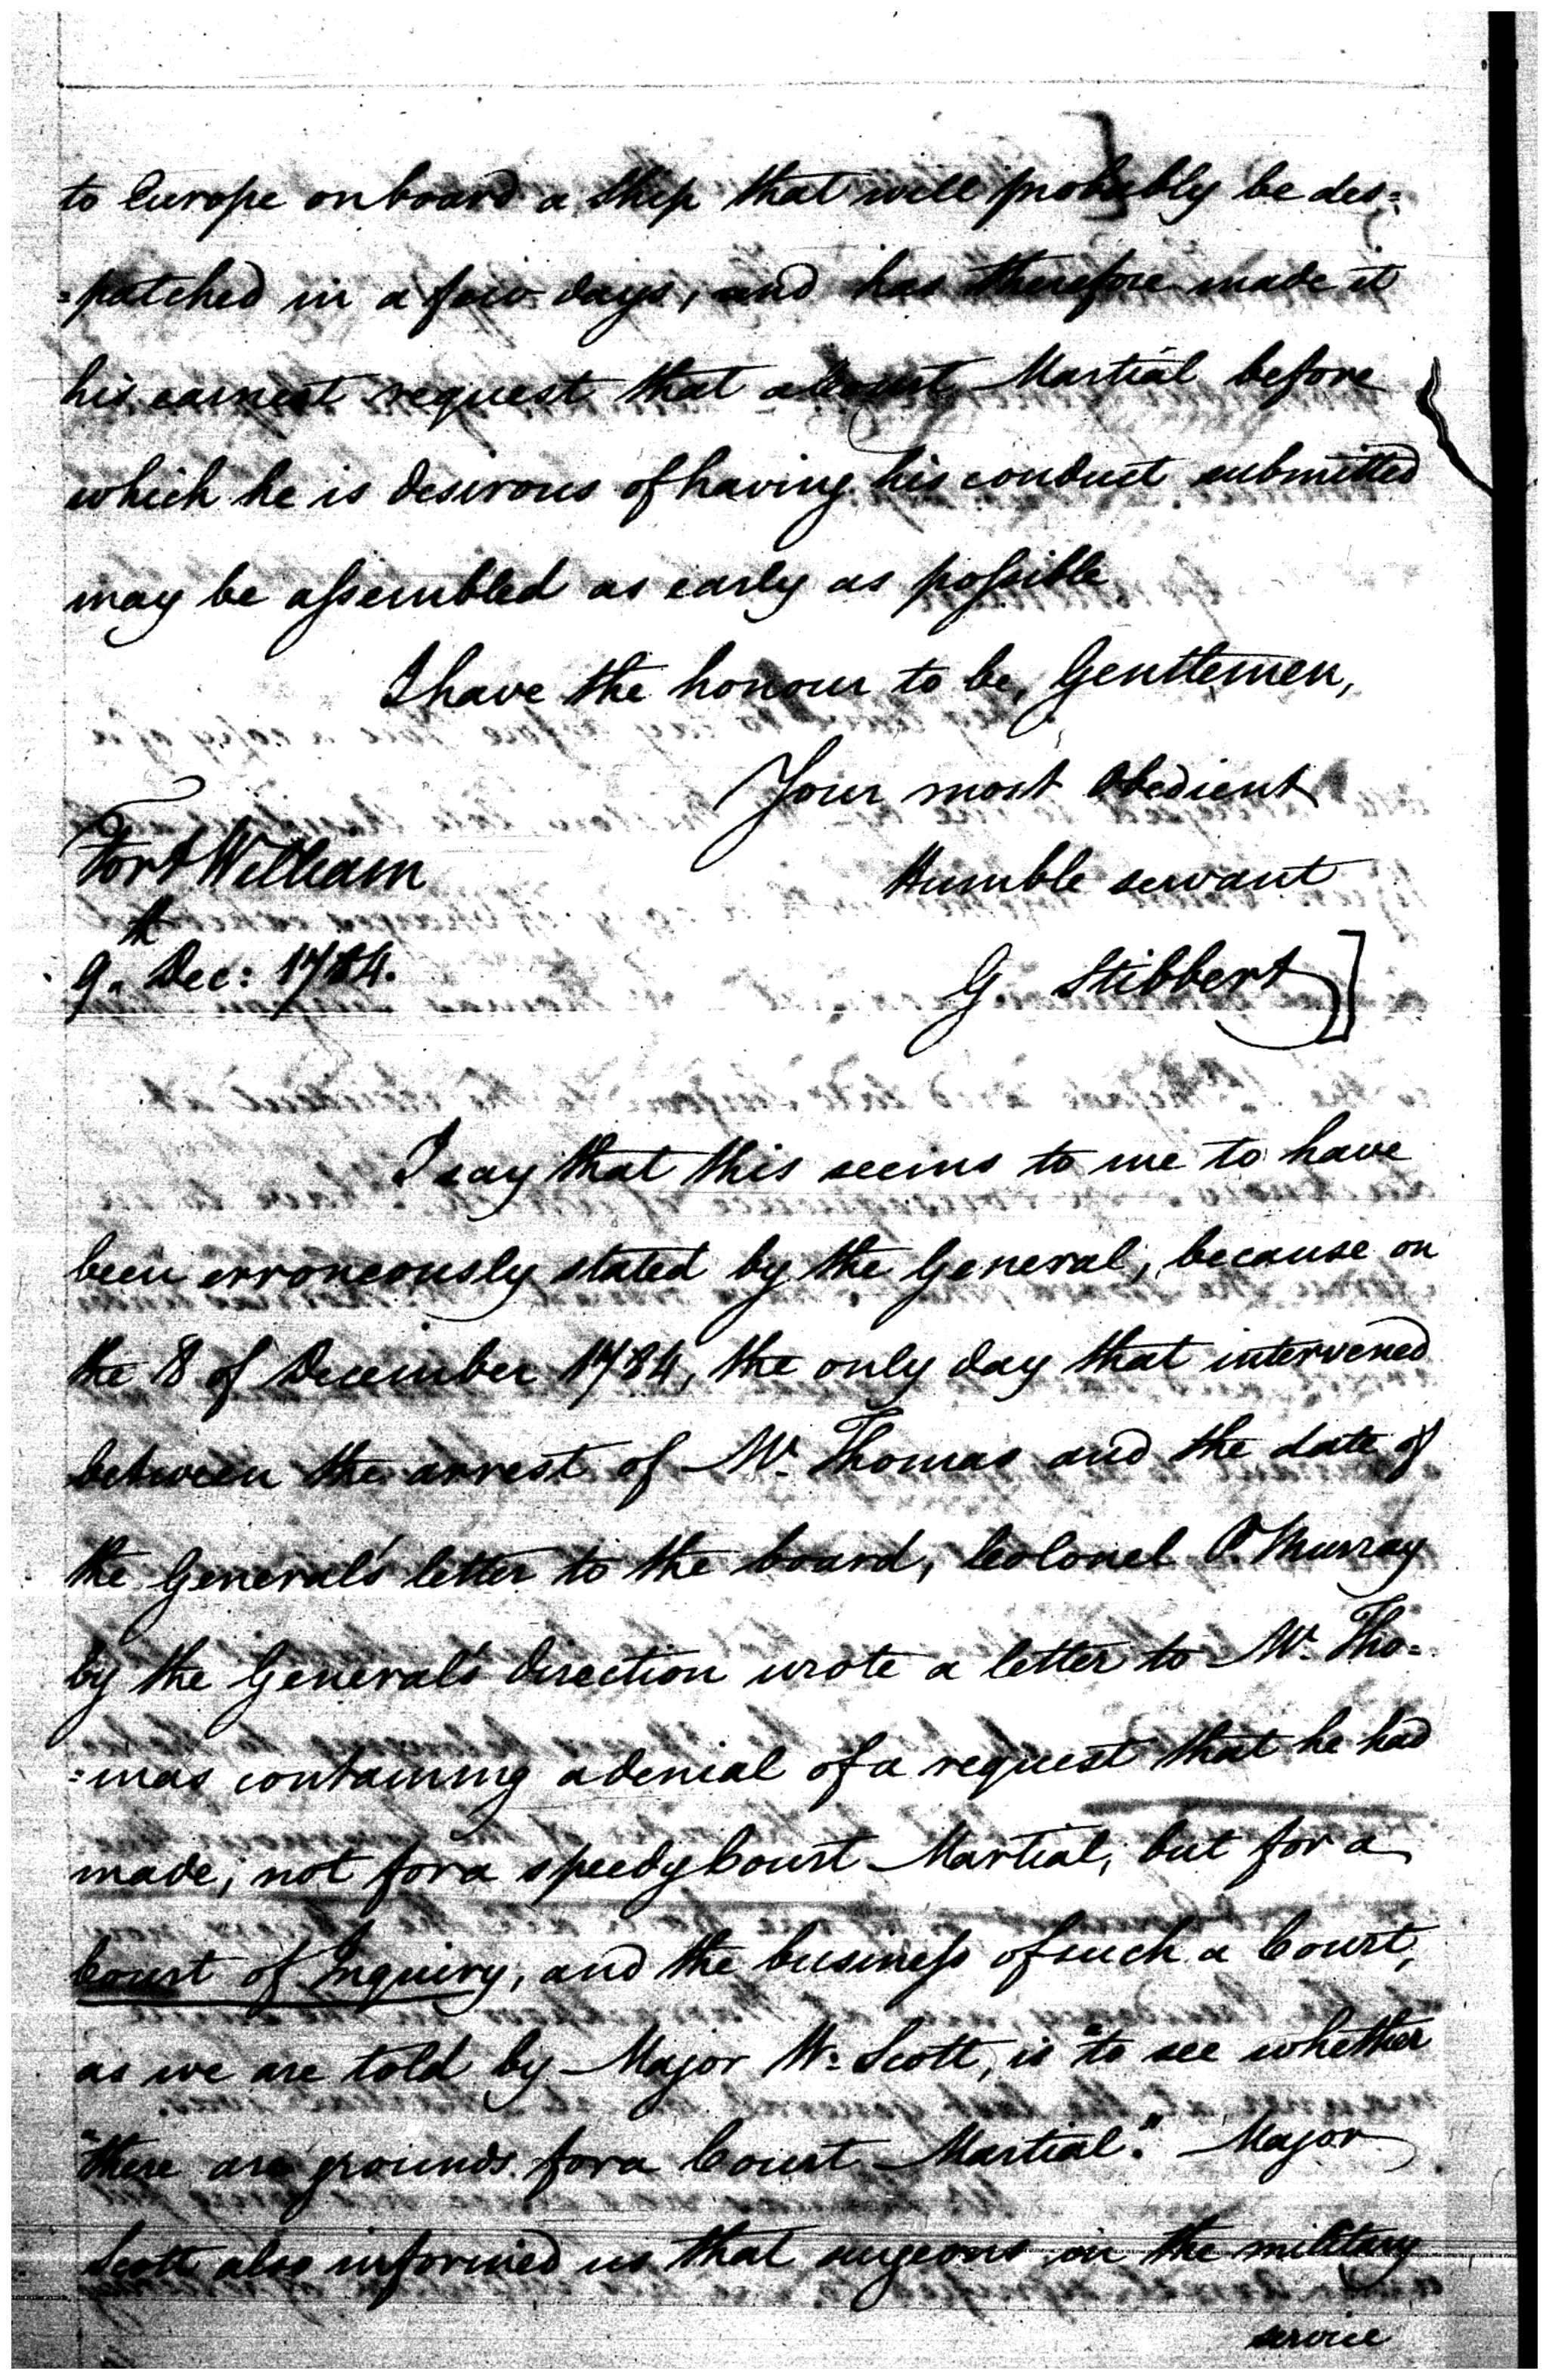 to Europe on board a Ship that will probably be des=
=patched in a few days, and has therefore made it
his earnest request that a Court Martial before
which he is desirous of having his conduct submitted
may be aſsembled as early as poſsible
I have the honour to be, Gentlemen,
Your most Obedient
Humble servant
Fort William
9.th Dec: 1784.
G Stibbert]
I say that this seems to me to have
been erroneously stated by the General, because on
the 8 of December 1784, the only day that intervened
between the arrest of Mr. Thomas and the date of
the General's letter to the board, Colonel P. Murray
by the General's direction wrote a letter to Mr. Tho=
=mas containing a denial of a request that he had
made; not for a speedy Court Martial, but for a
Court of Inquiry, and the busineſs of such a Court,
as we are told by Major Wm. Scott, is "to see whether
"there are grounds for a Court Martial." Major
Scott also informed us that surgeons in the military
service